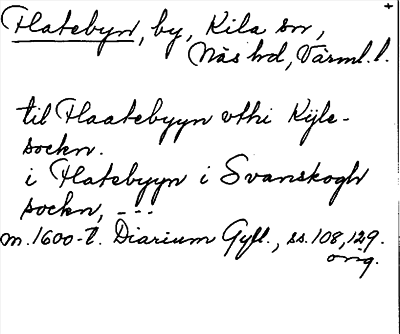 Flatebyn, by, Kila sn,
Näs hd, Värml. l.
til Flaatebyyn vthi Kijle-
sockn.
i Flatebyyn i Svanskogh
sockn, ---
m. 1600-t. Diarium Gyll., ss. 108, 129.
orig.